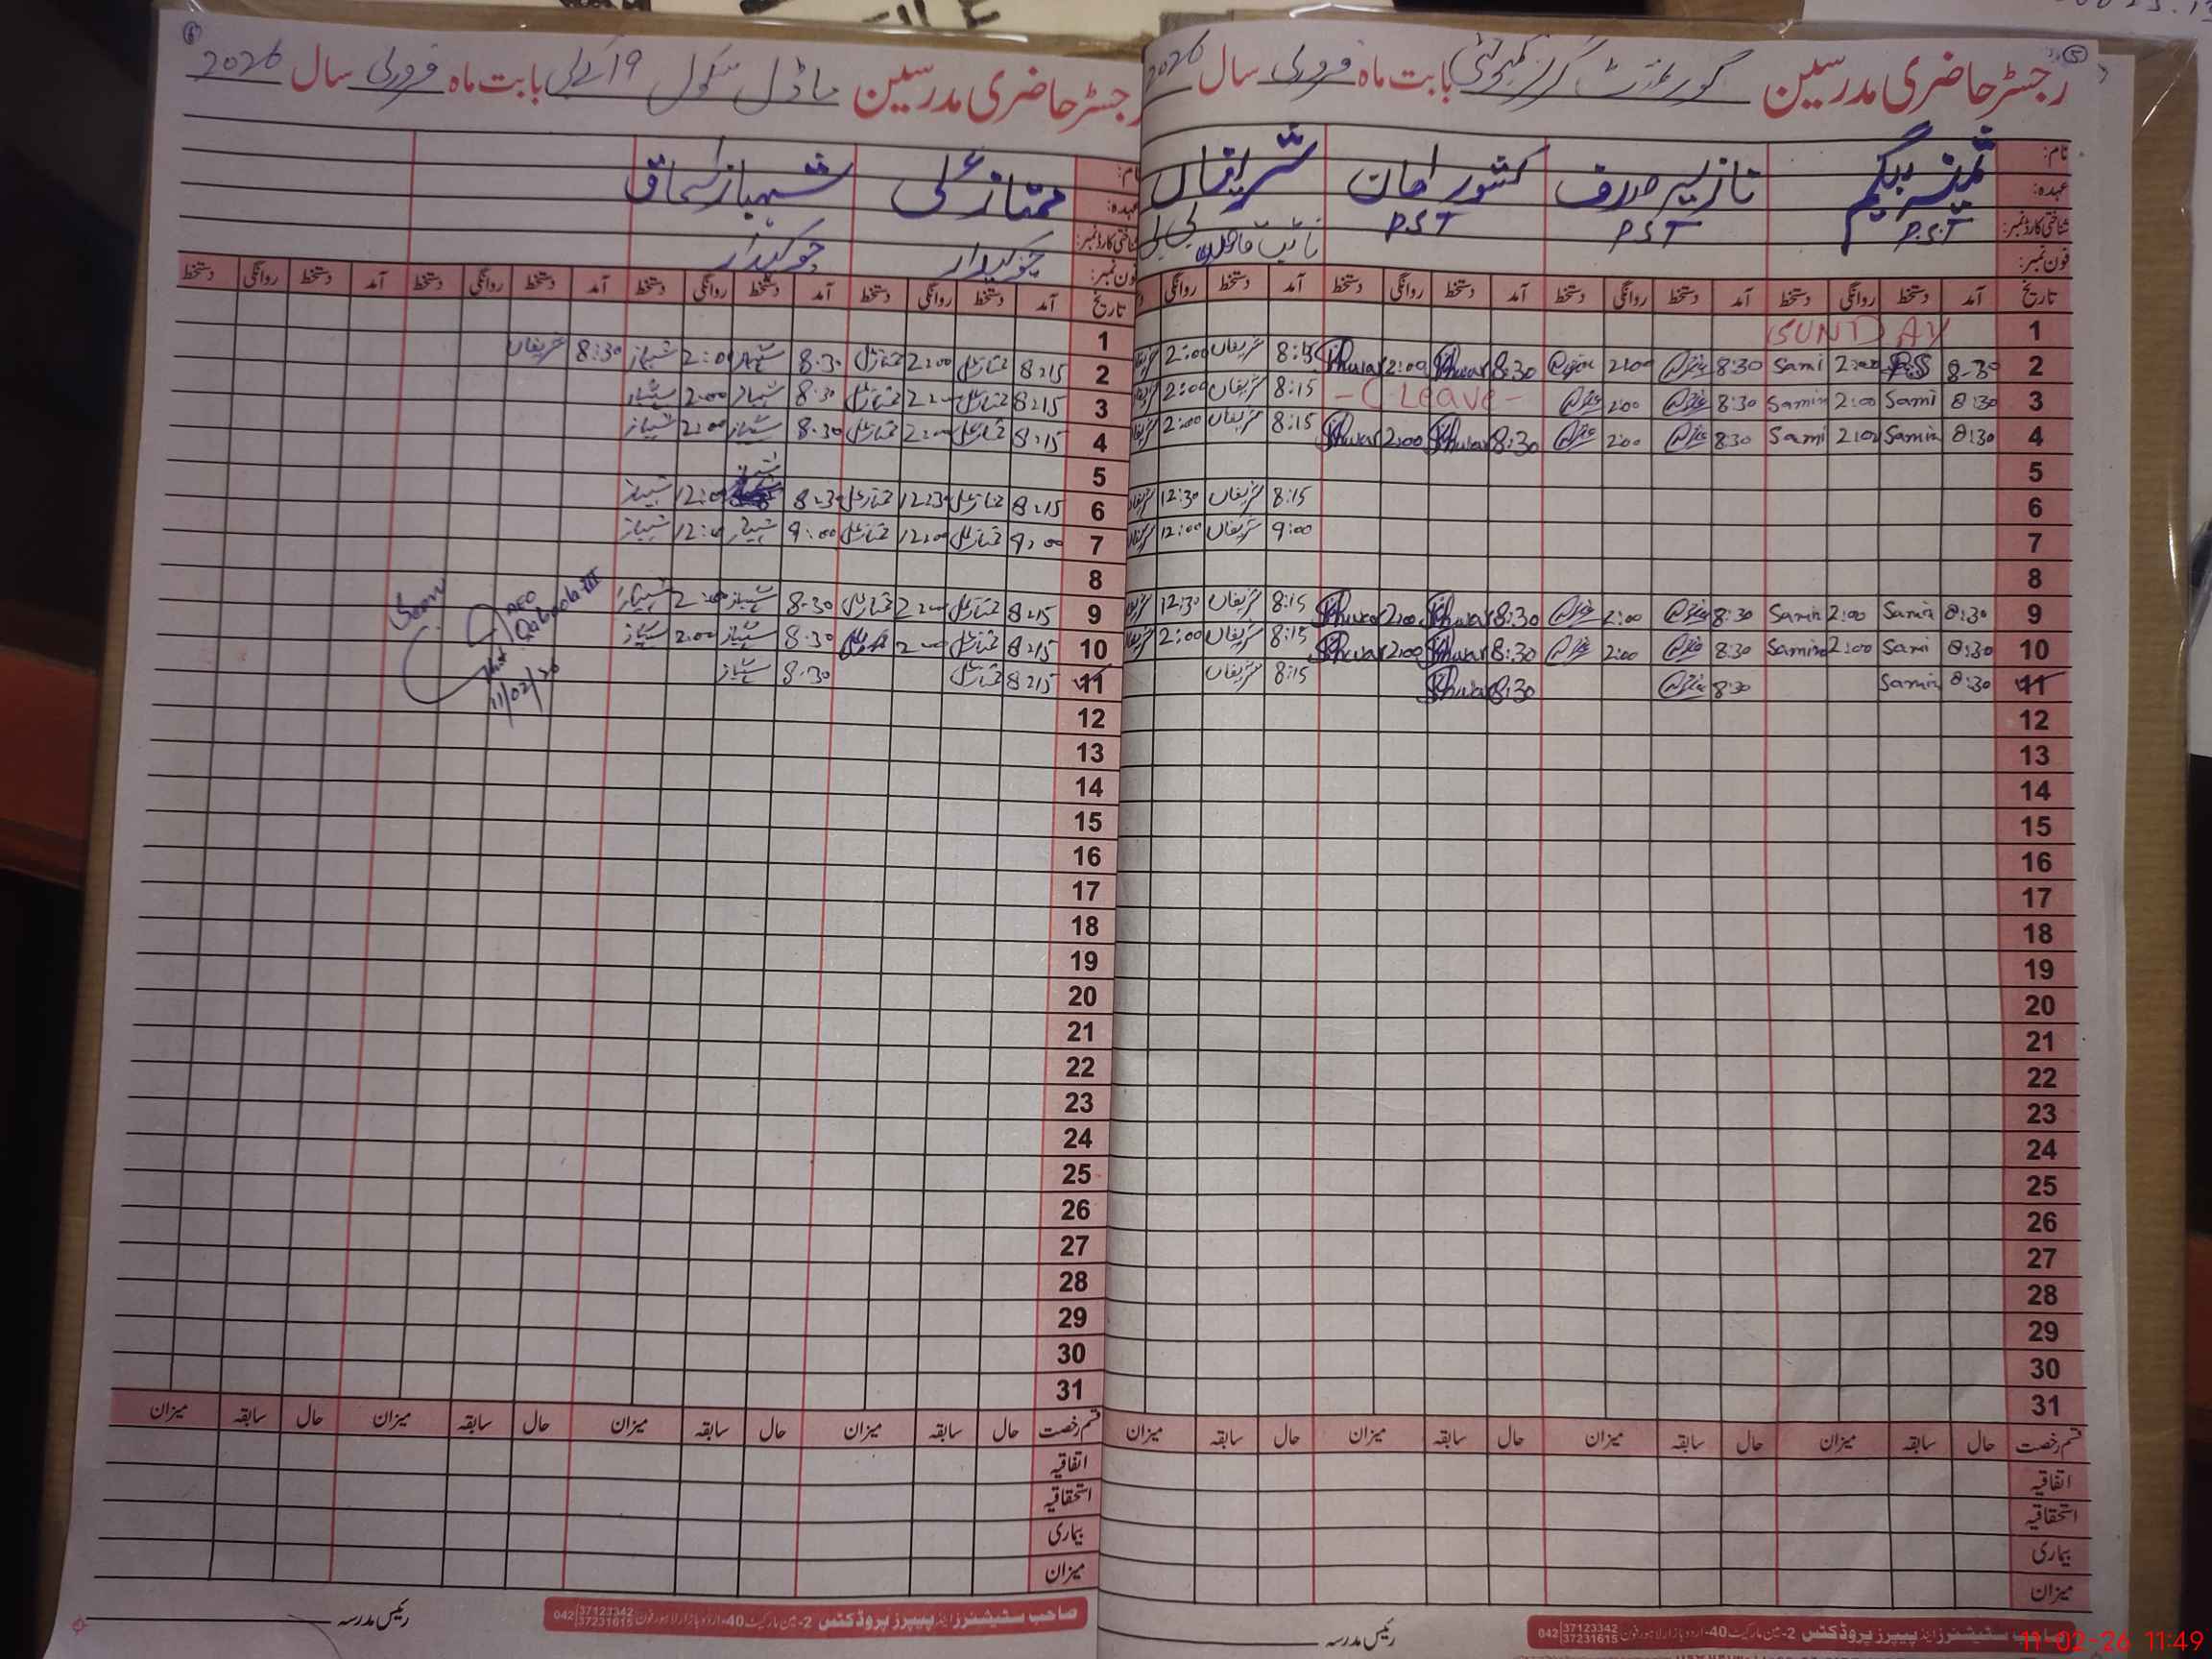 رجسٹر حاضری مدرسین گورنمنٹ گرلز کمیونٹی بابت ماہ فروری سال 2026
نام: ثمینہ بیگم نازیہ صدف کشور شریفاں
عہدہ:
شناختی کارڈ نمبر: P.S.T P.S.T P.S.T نائب قاصد بی بی
فون نمبر:
تاریخ آمد دستخط روانگی دستخط آمد دستخط روانگی دستخط آمد دستخط روانگی دستخط آمد دستخط روانگی
1 SUNDAY
2 8-30 2:00 Sami 8:30 2:00 8:30 Khwar 2:00 Khwar 8:15 شریفاں 2:00
3 8:30 Sami 2:00 Samin 8:30 2:00 - C Leave - 8:15 شریفاں 2:00
4 8:30 Samin 2:00 Sami 8:30 2:00 8:30 Khwar 2:00 Khwar 8:15 شریفاں 2:00
5
6 8:15 شریفاں 12:30
7 9:00 شریفاں 12:00
8
9 8:30 Samin 2:00 Samin 8:30 2:00 8:30 Khwar 2:00 Khwar 8:15 شریفاں 12:30
10 8:30 Sami 2:00 Samin 8:30 2:00 8:30 Khwar 2:00 Khwar 8:15 شریفاں 2:00
11 8:30 Samin 8:30 8:30 Khwar 8:15 شریفاں
12
13
14
15
16
17
18
19
20
21
22
23
24
25
26
27
28
29
30
31
قسم رخصت حال سابقہ میزان حال سابقہ میزان حال سابقہ میزان حال سابقہ میزان
اتفاقیہ
استحقاقیہ
بیماری
میزان
رئیس مدرسہ
صاحب سٹیشنرز اینڈ پیپرز پروڈکٹس 2-مین مارکیٹ 40-اردو بازار لاہور فون 042 37123342 37231615
11-02-26 11:49
رجسٹر حاضری مدرسین ماڈل سکول 19 کے بی بابت ماہ فروری سال 2026
نام: ممتاز علی شہباز اسحاق
عہدہ:
شناختی کارڈ نمبر: چوکیدار چوکیدار
فون نمبر:
تاریخ آمد دستخط روانگی دستخط آمد دستخط روانگی دستخط آمد دستخط روانگی دستخط آمد دستخط روانگی دستخط
1
2 8:15 ممتاز علی 2:00 ممتاز علی 8:30 شہباز 2:00 شہباز 8:30 شریفاں
3 8:15 ممتاز علی 2:00 ممتاز علی 8:30 شہباز 2:00 شہباز
4 8:15 ممتاز علی 2:00 ممتاز علی 8:30 شہباز 2:00 شہباز
5
6 8:15 ممتاز علی 12:30 ممتاز علی 8:30 شہباز 12:00 شہباز
7 9:00 ممتاز علی 12:00 ممتاز علی 9:00 شہباز 12:00 شہباز
8
9 8:15 ممتاز علی 2:00 ممتاز علی 8:30 شہباز 2:00 شہباز
10 8:15 ممتاز علی 2:00 8:30 شہباز 2:00 شہباز
11 8:15 ممتاز علی 8:30 شہباز
Seen
AEO
Qaboola-III
11/02/26
12
13
14
15
16
17
18
19
20
21
22
23
24
25
26
27
28
29
30
31
قسم رخصت حال سابقہ میزان حال سابقہ میزان حال سابقہ میزان حال سابقہ میزان
اتفاقیہ
استحقاقیہ
بیماری
میزان
رئیس مدرسہ
صاحب سٹیشنرز اینڈ پیپرز پروڈکٹس 2-مین مارکیٹ 40-اردو بازار لاہور فون 042 37123342 37231615